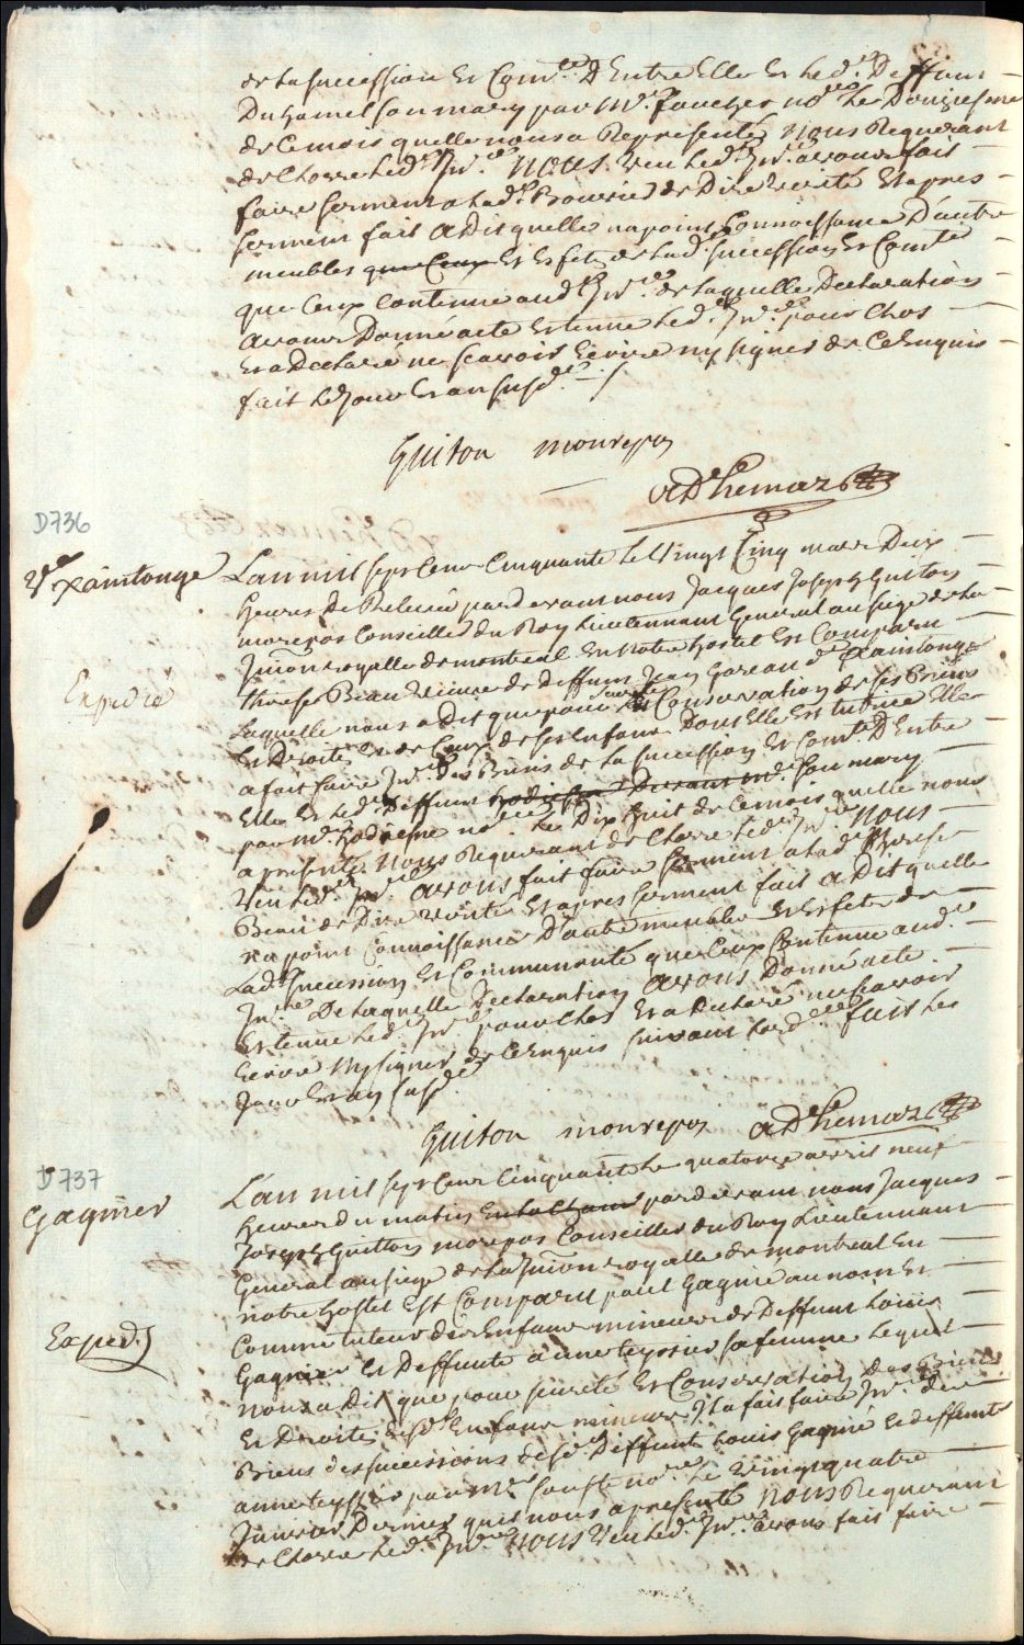 de la succession Et Com.té D Entre Elle Et led.t Deffunt
Duhamel son mary par M.e Foucher no.re Le Douziesme
de Ce mois quelle nous a Representé, Nous Requerant
de Clorre led.t Inv.re NOUS. Veu led.t Inv.re avons fait
faire serment a lad.e De Dire Verité Et apres
serment fait a Dit quelle na point Connoissance D'autre
meubles que Ceux Et Effets de lad.e succession Et Com.té
que Ceux Contenue aud.t Inv.re de laquelle Declaration
avons Donné acte Et tenue led.t Inv.re pour Clos
Et a Declaré ne scavoir Ecrire ny signer de Ce Enquis
fait led. Jour Et an susd.t
Guiton monrepos
adhemar
D736
V.e Xaintonge
L'an mil sept Cent Cinquante le Vingt Cinq mars Deux
heures De Relevée pardevant nous Jacques Joseph Guiton
morepos Conseiller du Roy Lieutennant General au siege de la
Juri.on royalle de montreal En notre hostel Est Comparu
Therese Beau Veuve de Deffunt Jean Gareau d.t Xaintonge
Expedié
Laquelle nous a dit que pour sureté Et Conservation de ses Biens
Et Droits Et de Ceux de ses Enfans Dont Elle Est tutrice Elle
a fait faire Inv.re Des Biens de la succession Et Com.té D Entre
Elle Et led.t Deffunt son mary
par M.e hodiesne no.re Le Dix huit de Ce mois quelle nous
a presenté Nous Requerant de Clorre led.t Inv.re Nous
Veu led.t Inv.re avons fait faire serment a lad.e Therese
Beau de Dire Verité Et apres serment fait a Dit quelle
n'a point Connoissance D'autre meubles Et Effets de
Lad.e succession Et Communauté que Ceux Contenue aud.t
In.re De laquelle Declaration avons Donné acte
Et tenue led.t Inv.re pour Clos Et a Declaré ne scavoir
Ecrire Ny signer de Ce Enquis suivant lord.ce fait les
Jour Et an susd.t
Guiton monrepos adhemar
D737
Gagnier
L'an mil sept Cent Cinquante Le quatorze avril neuf
heures du matin pardevant nous Jacques
Joseph Guitton morepos Conseiller du Roy Lieutennant
General au siege de la Juri.on royalle de montreal En
notre hostel Est Comparu paul Gagnié au nom Et
Exped.
Comme tuteur des Enfans mineurs de Deffunt Louis
Gagnier Et Deffunte anne teyssier sa femme Lequel
nous a Dit que pour sureté Et Conservation Des Biens
Et Droits desd.ts Enfans mineurs Il a fait faire Inv.re des
Biens des successions desd.ts Deffunt Louis Gagnié Et deffunte
anne teyssier par M.e no.re Le Vingt quatre
Janvier Dernier quil nous a presenté Nous Requerant
de Clorre led.t Inv.re NOUS Veu led.t Inv.re avons fait faire